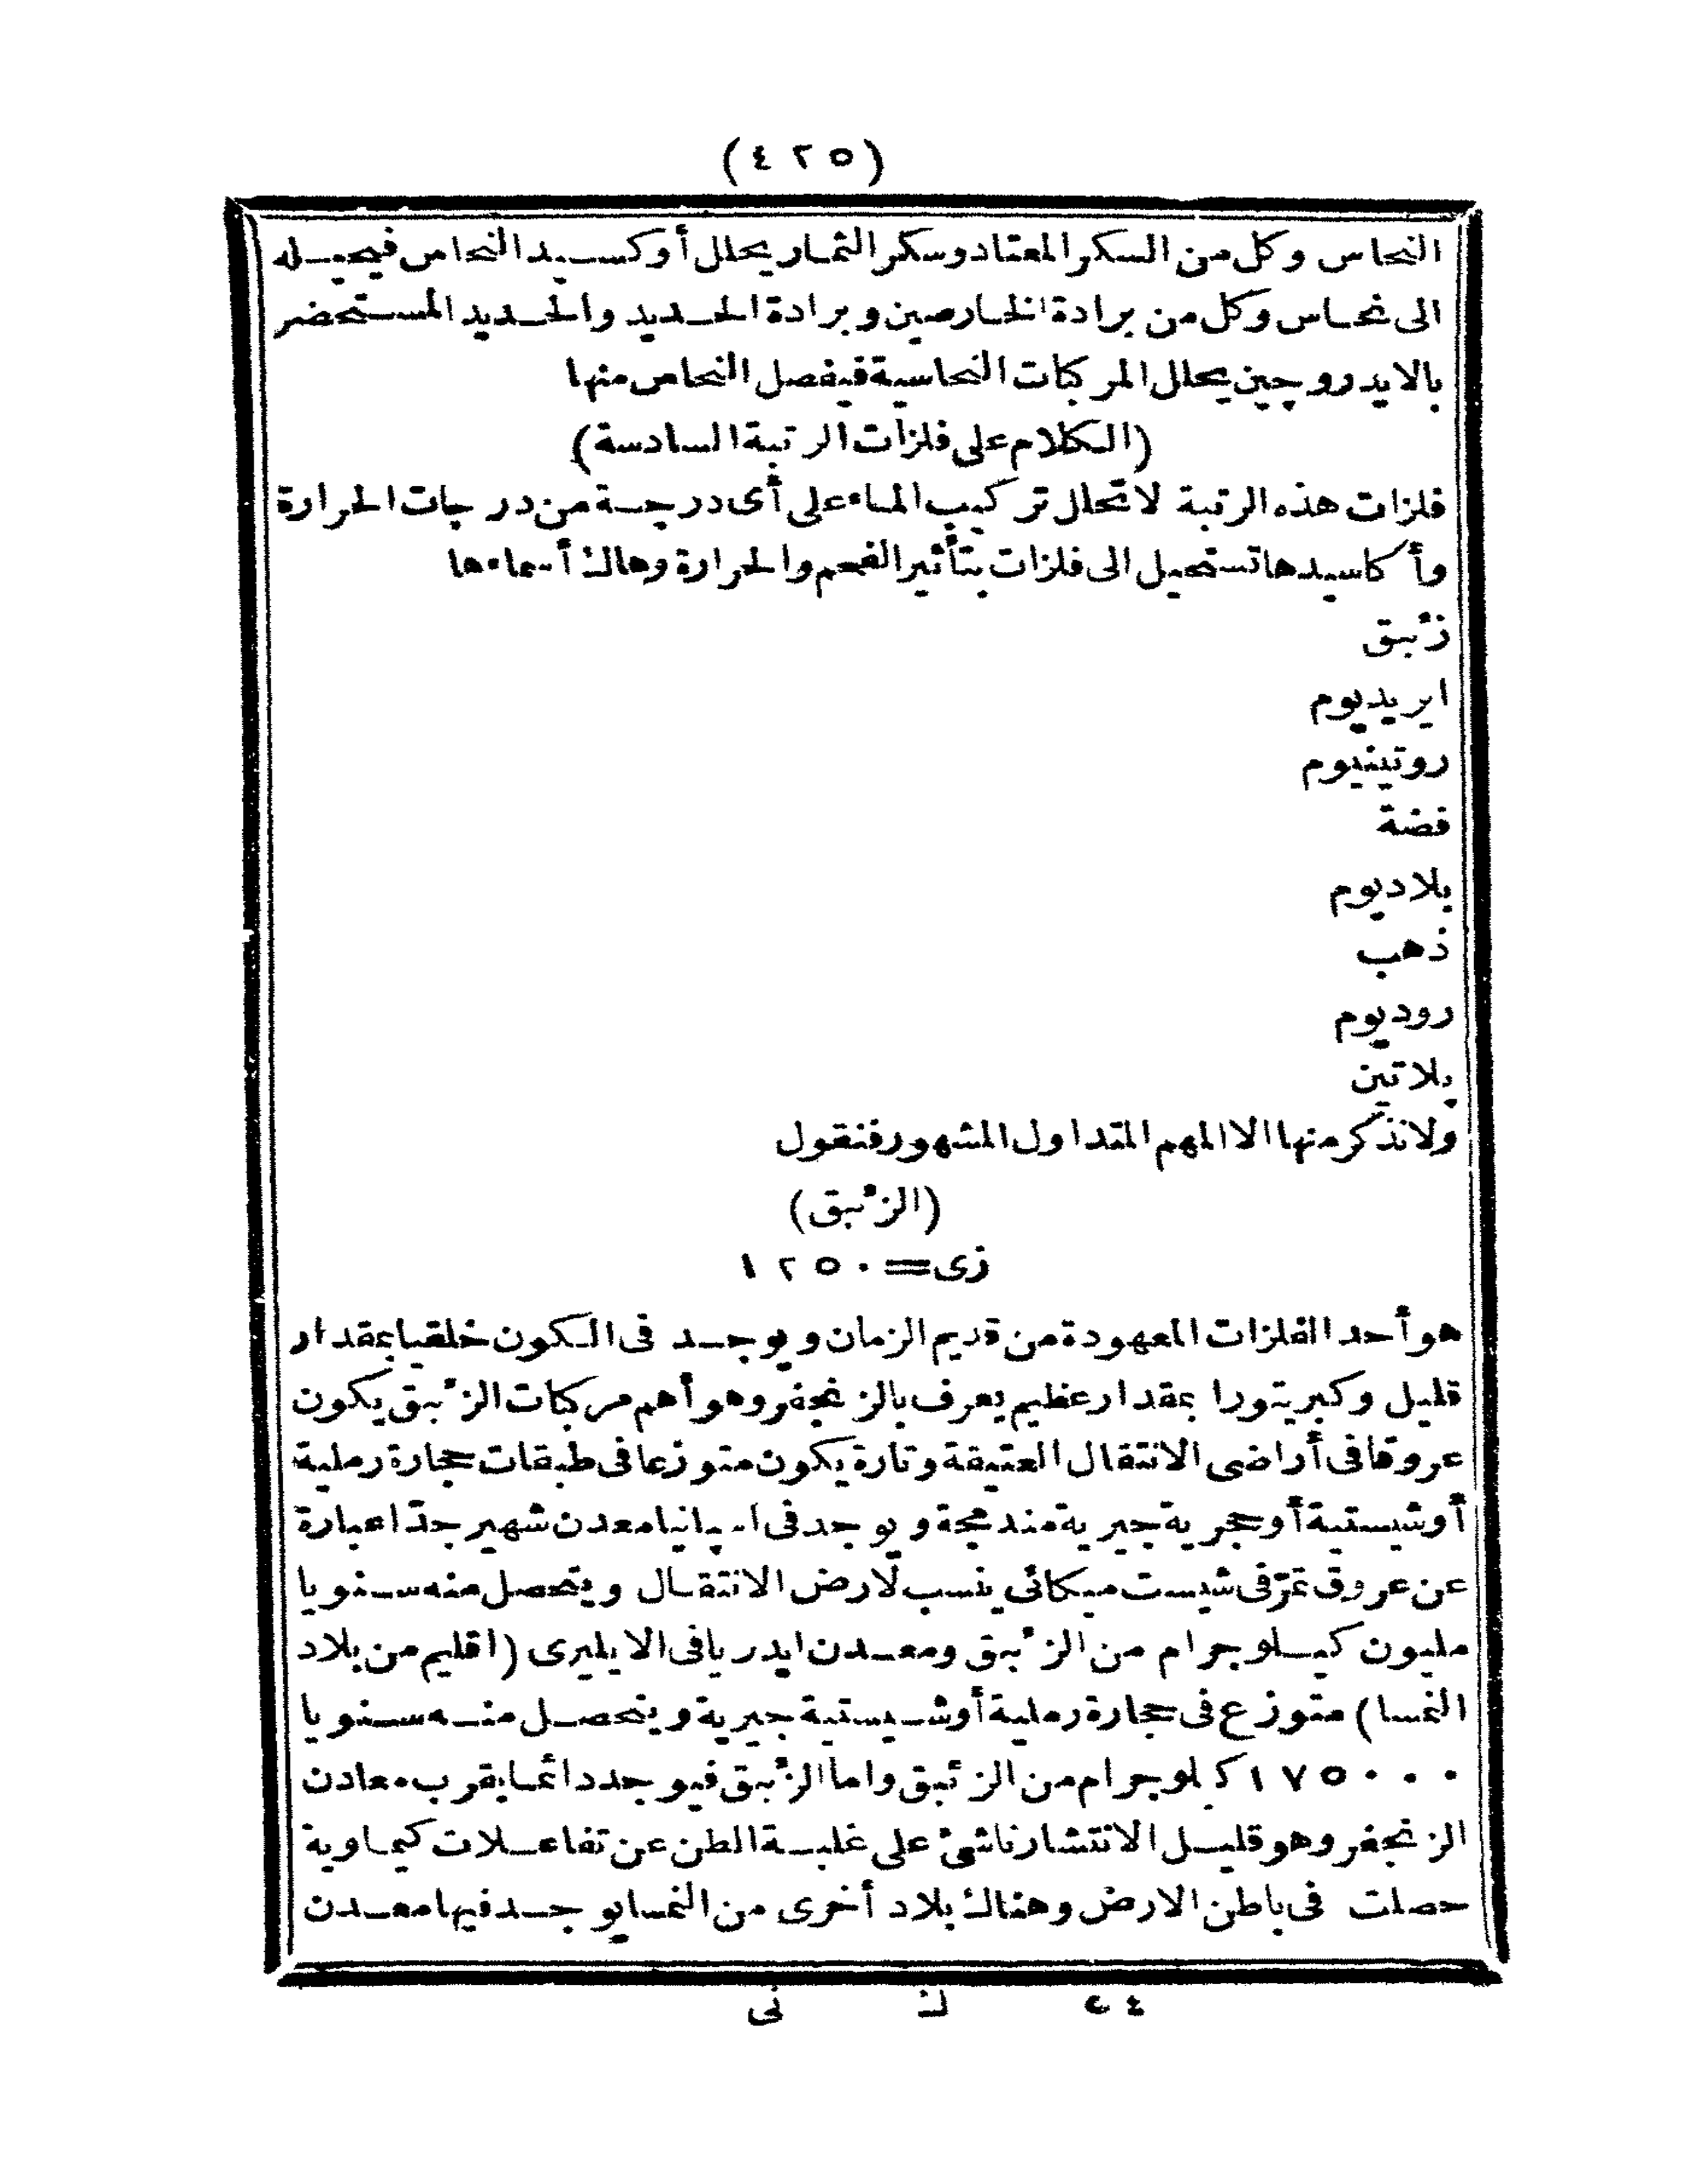 (٤٢٥)
النحاس وكل من السكر المعتاد وسكر الثمار يحلل أوكسيد النحاس فيحيله
الى نحاس وكل من برادة الخارصين وبرادة الحديد والحديد المستحضر
بالايدروجين يحلل المركبات النحاسية فيفصل النحاس منها
(الكلام على فلزات الرتبة السادسة)
فلزات هذه الرتبة لا تحلل تركيب الماء على أى درجة من درجات الحرارة
وأكاسيدها تستحيل الى فلزات بتأثير الفحم والحرارة وهاك أسماءها
زئبق
ايريديوم
روتينيوم
فضة
بلاديوم
ذهب
روديوم
پلاتين
ولا نذكر منها الا المهم المتداول المشهور فنقول
(الزئبق)
زى = ١٢٥٠
هو أحد الفلزات المعهودة من قديم الزمان ويوجد فى الكون خلقيا بمقدار
قليل وكبريتورا بمقدار عظيم يعرف بالزنجفر وهو أهم مركبات الزئبق يكون
عروقا فى أراضى الانتقال العتيقة وتارة يكون متوزعا فى طبقات حجارة رملية
أو شيستية أو حجرية جيرية مندمجة ويوجد فى اسپانيا معدن شهير جدّا عبارة
عن عروق تمرّ فى شيست ميكائى ينسب لارض الانتقال ويتحصل منه سنويا
مليون كيلوجرام من الزئبق ومعدن ايدريا فى الايليرى (اقليم من بلاد
النمسا) متوزع فى حجارة رملية أو شيستية جيرية ويتحصل منه سنويا
١٧٥٠٠٠ كيلوجرام من الزئبق واما الزئبق فيوجد دائما بقرب معادن
الزنجفر وهو قليل الانتشار ناشئ على غلبة الظن عن تفاعلات كيماوية
حصلت فى باطن الارض وهناك بلاد أخرى من النمسا يوجد فيها معدن
٥٤ ك نى